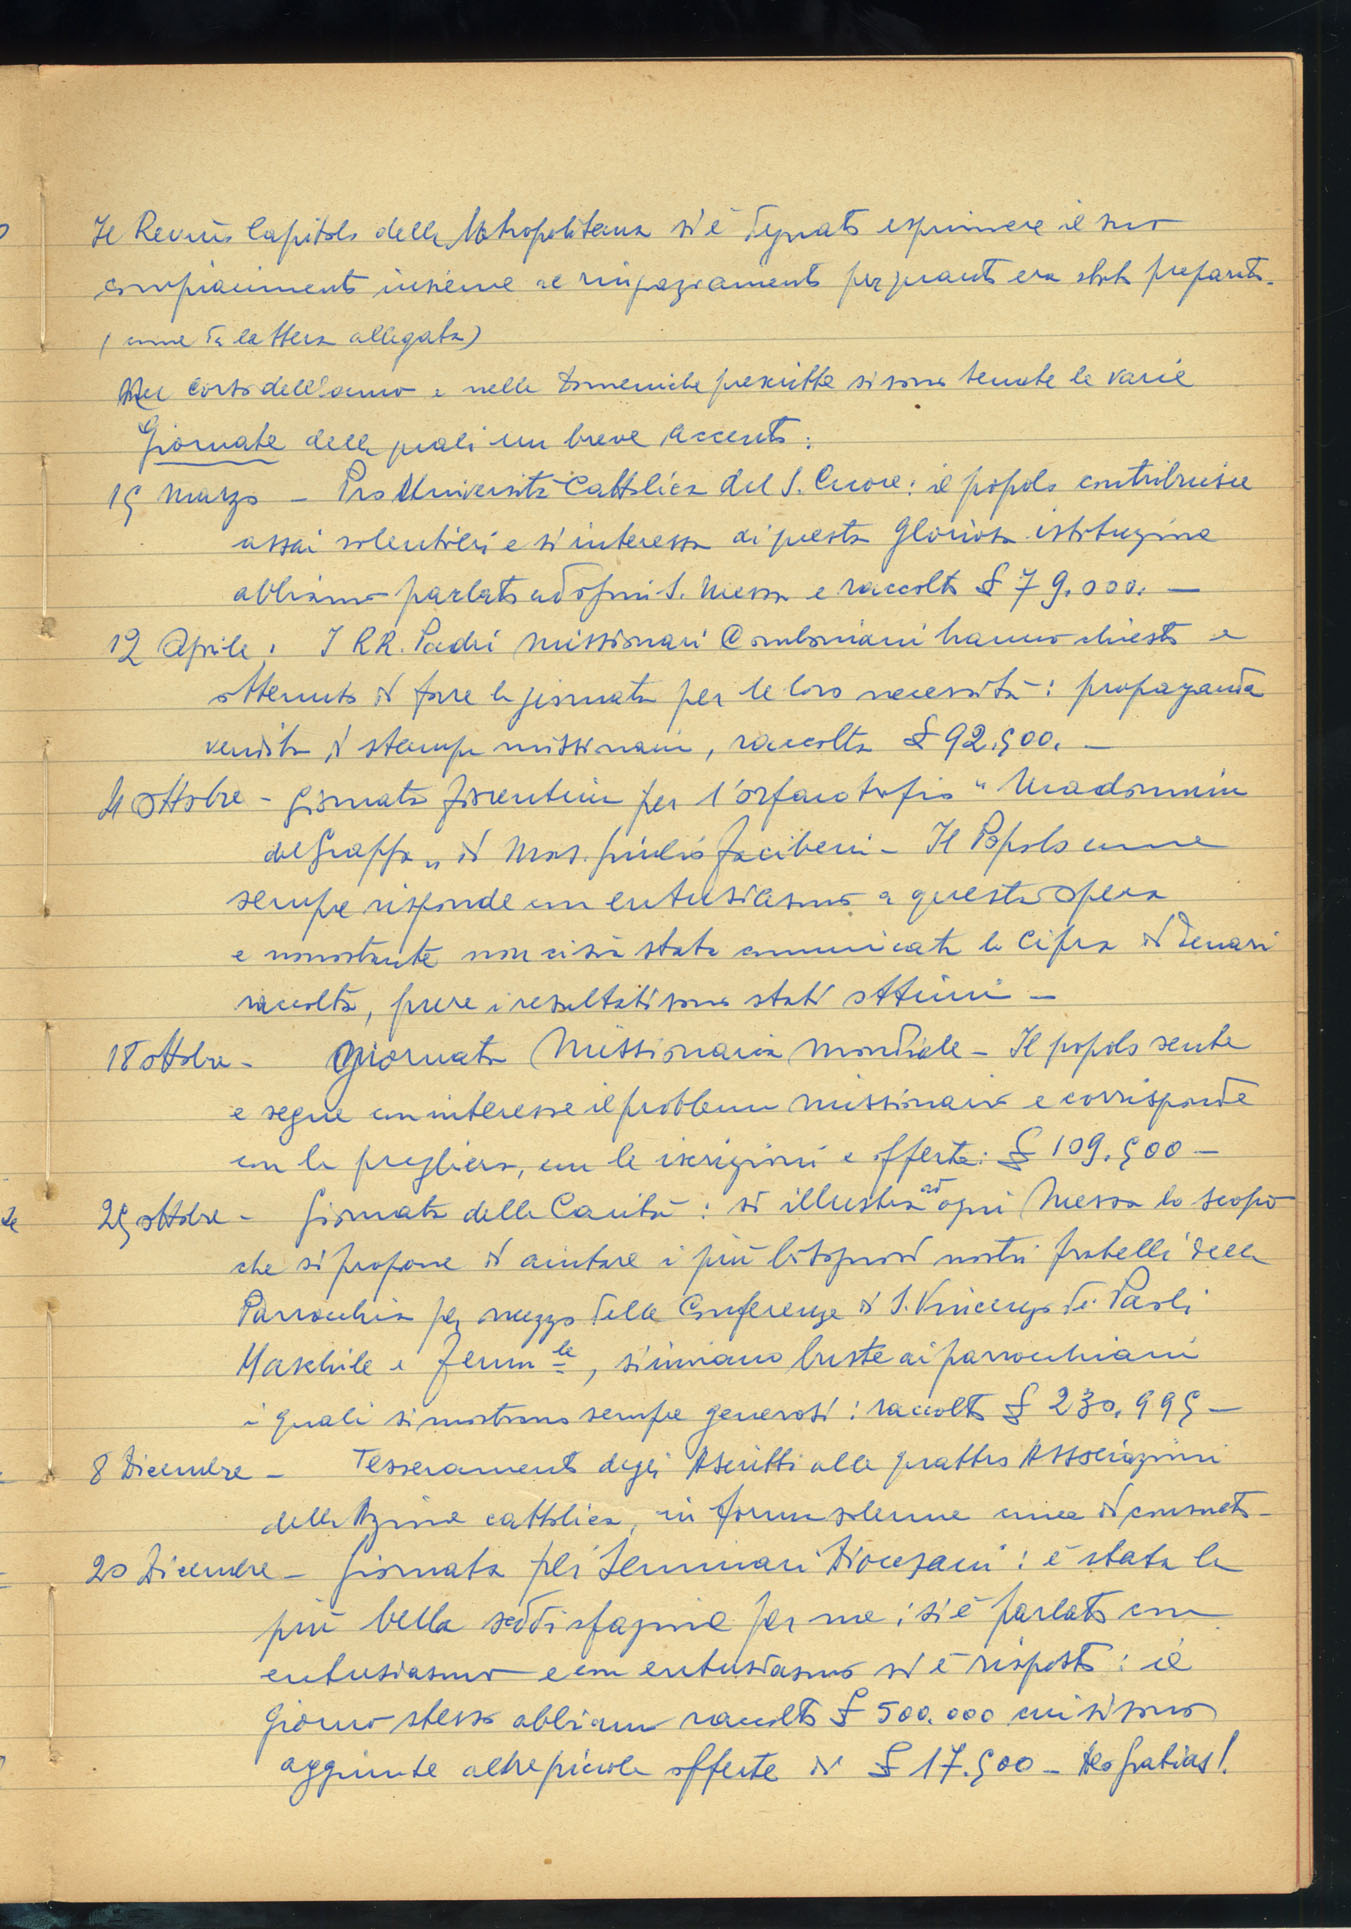 Il Rev.mo Capitolo della Metropolitana si è degnato esprimere il suo
compiacimento insieme al ringraziamento per quanto era stato preparato.
(come da lettera allegata)
Nel corso dell'anno e nelle Domeniche prescritte si sono tenute le varie
Giornate delle quali un breve accento:
15 Marzo - Pro Università Cattolica del S. Cuore: il popolo contribuisce
assai volentieri e si interessa di questa gloriosa istituzione
abbiamo parlato ad ogni S. Messa e raccolto £ 79.000. —
12 Aprile. I RR. Padri Missionari Comboniani hanno chiesto e
ottenuto di fare la giornata per le loro necessità: propaganda
vendita di stampe missionarie, raccolta £ 92.500. —
4 Ottobre - Giornata fiorentina per l'orfanotrofio "Madonnina
del Grappa" di Mons. Giulio Facibeni - Il Popolo come
sempre risponde con entusiasmo a questa opera
e nonostante non ci sia stata comunicata la cifra di denari
raccolta, pure i resultati sono stati ottimi —
18 ottobre - Giornata Missionaria Mondiale - Il popolo sente
e segue con interesse il problema missionario e corrisponde
con la preghiera, con le iscrizioni e offerte: £ 109.500 —
25 ottobre - Giornata della Carità: si illustra ad ogni Messa lo scopo
che si propone di aiutare i più bisognosi nostri fratelli della
Parrocchia per mezzo delle Conferenze di S. Vincenzo de' Paoli
Maschile e Femm.le, si inviano buste ai parrocchiani
i quali si mostrano sempre generosi: raccolto £ 230.995 —
8 Dicembre - Tesseramento degli Ascritti alle quattro Associazioni
della Azione cattolica, in forma solenne come di consueto -
20 Dicembre - Giornata pei Seminari Diocesani: è stata la
più bella soddisfazione per me; si è parlato con
entusiasmo e con entusiasmo si è risposto: il
giorno stesso abbiamo raccolto £ 500.000 cui si sono
aggiunte altre piccole offerte di £ 17.500 - Deo gratias!